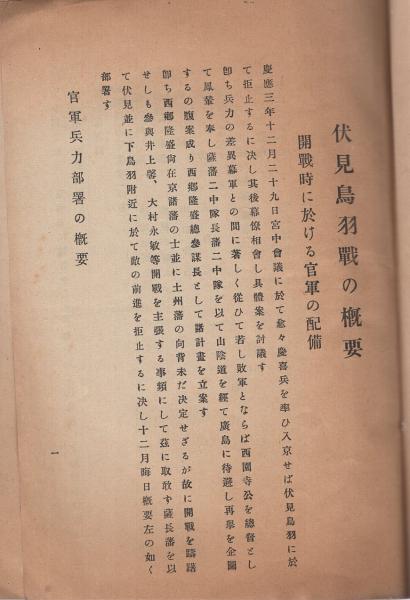 伏見鳥羽戰の概要
開戰時に於ける官軍の配備
慶應三年十二月二十九日宮中會議に於て愈々慶喜兵を率ひ入京せば伏見鳥羽に於
て拒止するに決し其後幕僚相會し具體案を討議す
卽ち兵力の差異幕軍との間に著しく從ひて若し敗軍とならば西園寺公を總督とし
て鳳輦を奉し薩藩二中隊長藩二中隊を以て山陰道を經て廣島に待避し再擧を企圖
するの腹案成り西鄕隆盛總參謀長として諸計畫を立案す
卽ち西鄕隆盛尙在京諸藩の士並に土州藩の向背未だ決定せざるが故に開戰を躊躇
せしも參與井上馨、大村永敏等開戰を主張する事頻にして茲に取敢ず薩長藩を以
て伏見並に下鳥羽附近に於て敵の前進を拒止するに決し十二月晦日概要左の如く
部署す
官軍兵力部署の概要
一